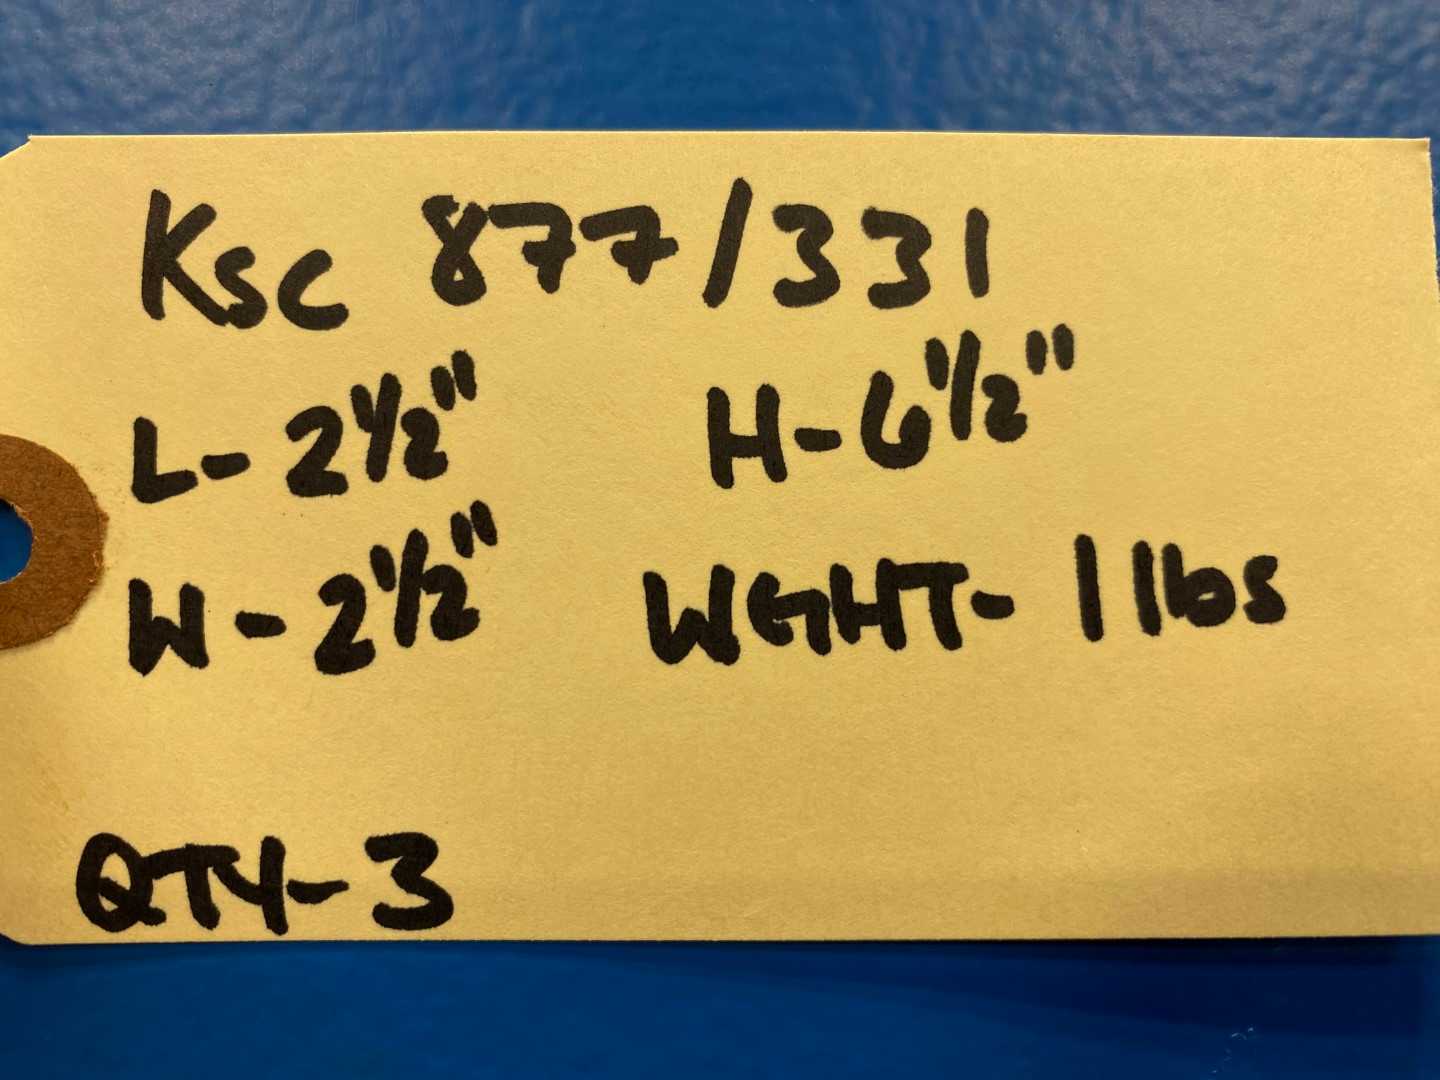 Ksc 877/331
L-2 1/2" H-6 1/2"
W-2 1/2" WGHT- 1 lbs
QTY-3